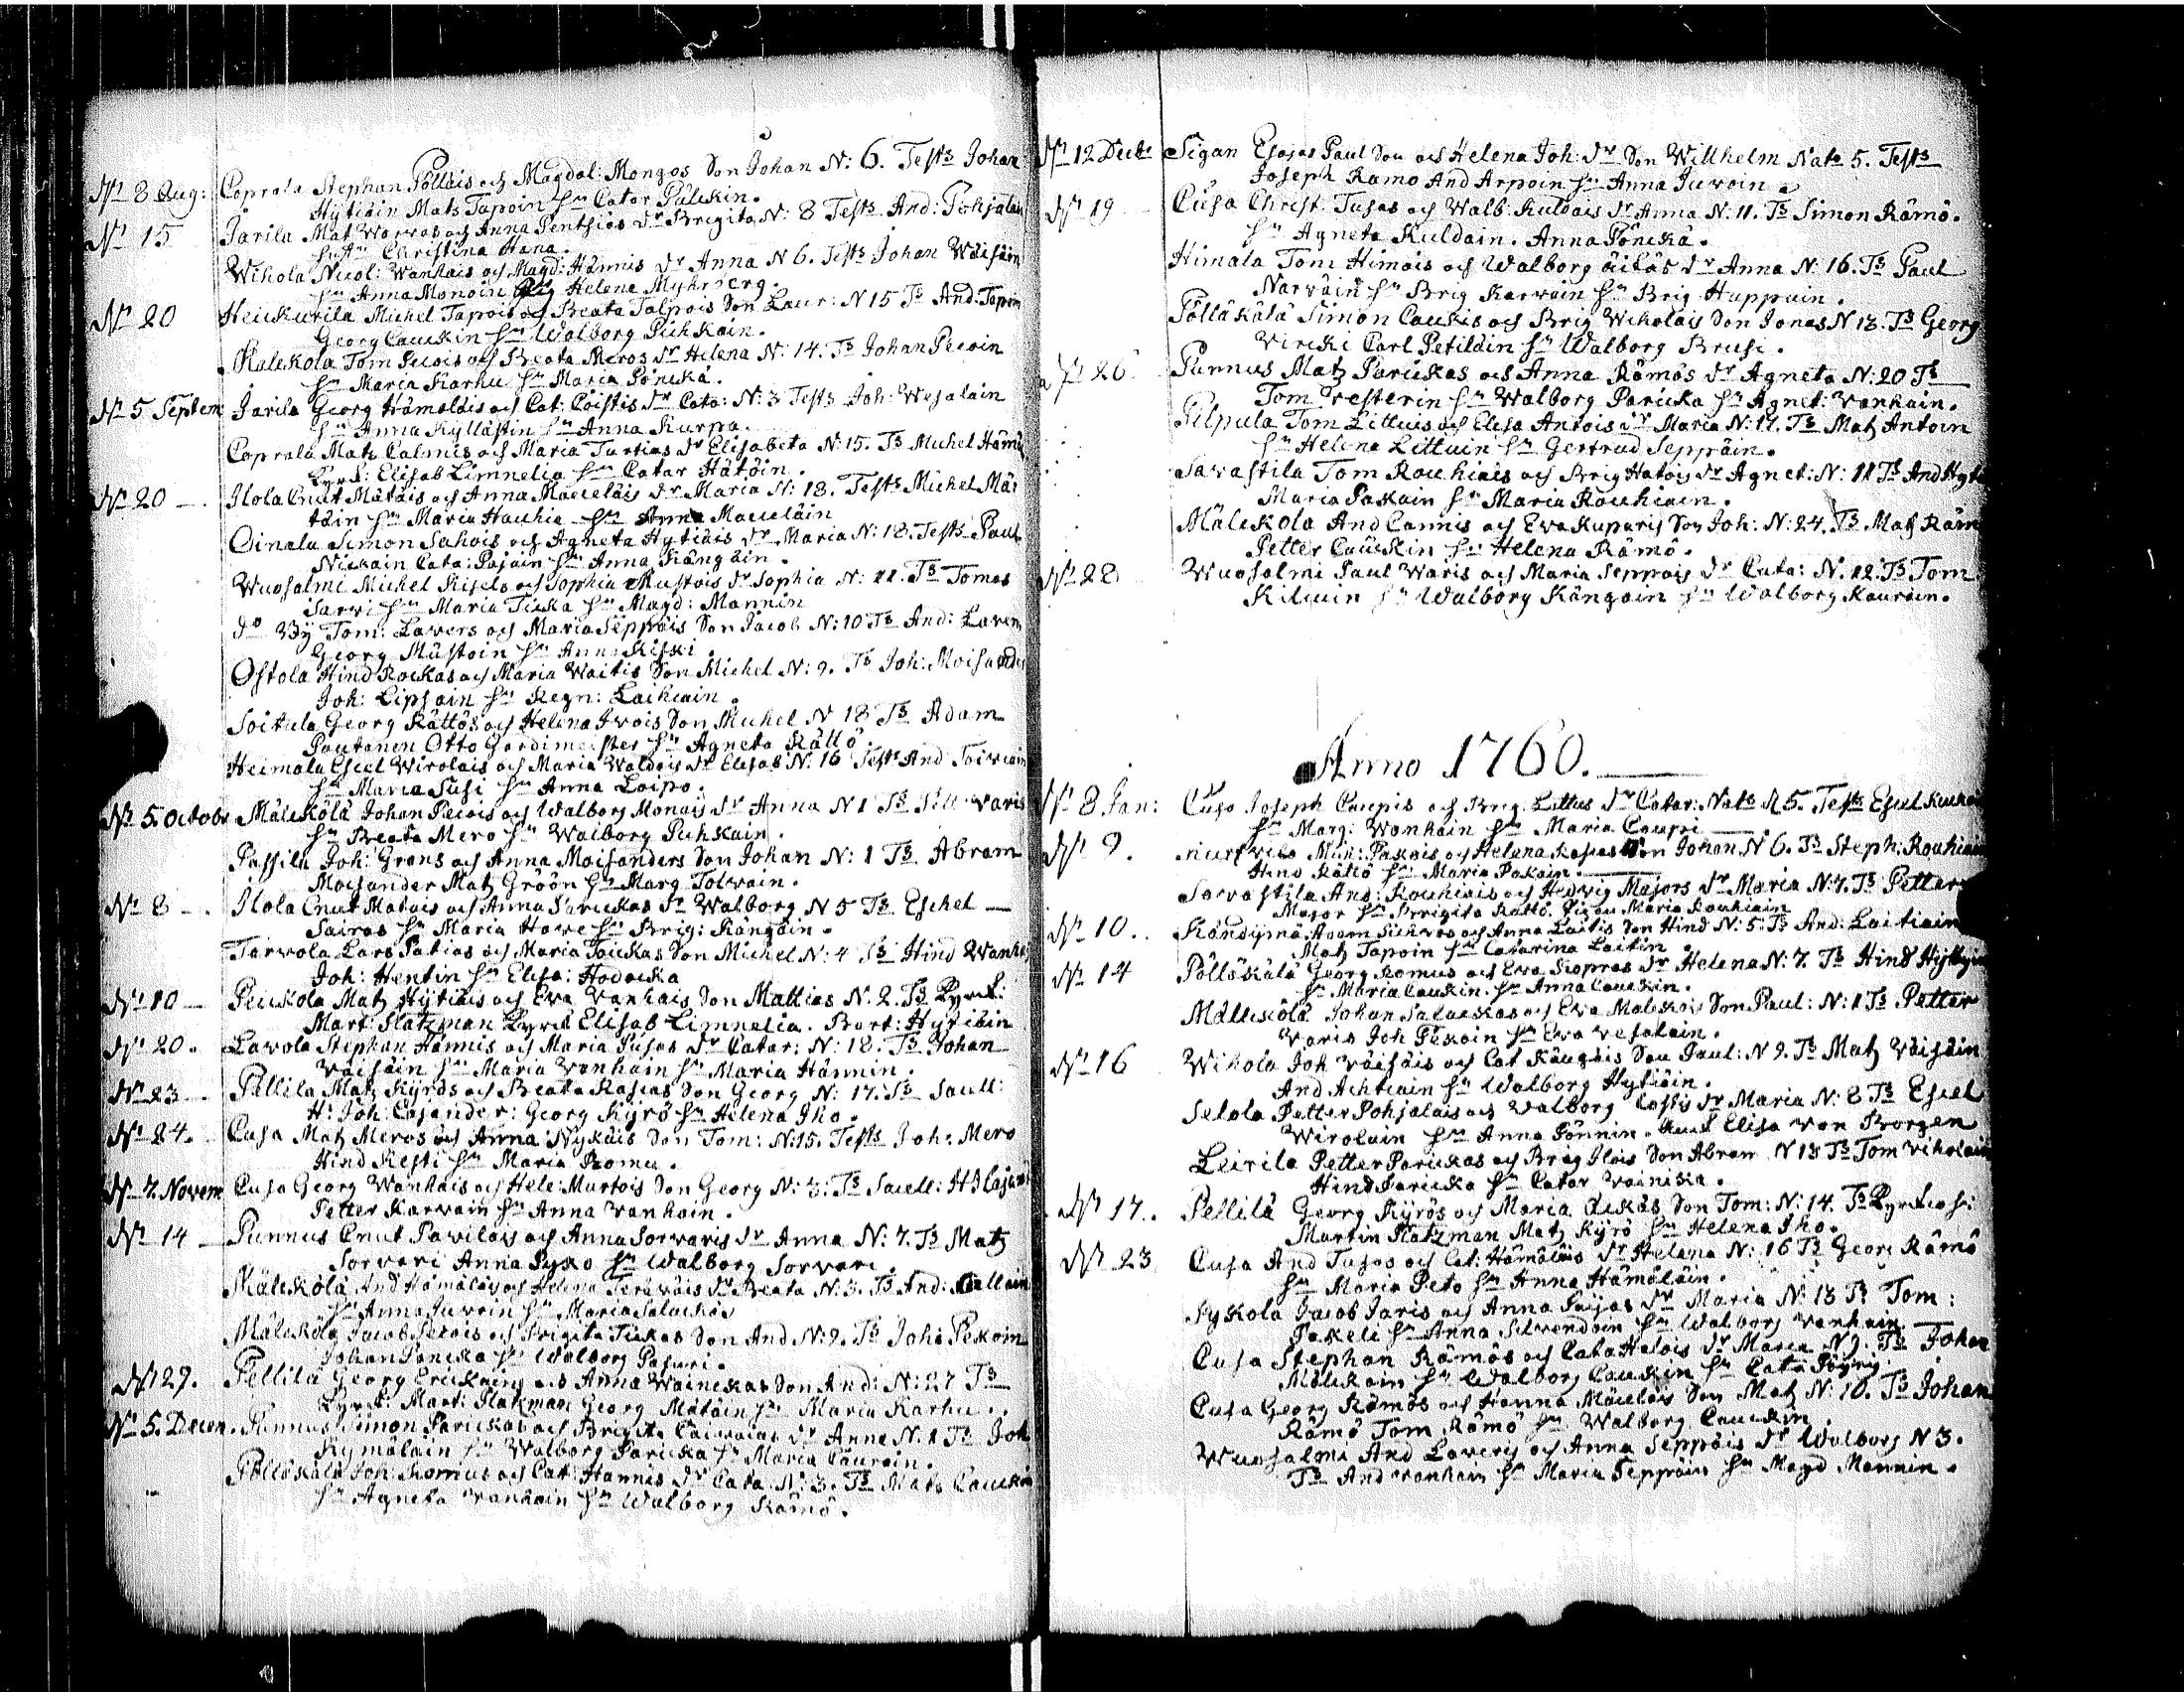 Nº 8 Aug: Coprala Stephan Pölläis och Magdal: Mongos Son Johan N: 6. Tests Johan
Hytiäin Mats Tapoin hu Catar Pulckin.
Nº 15 Jarila Mat Warvas och Anna Penthiäs dr Brigita N: 8 Tests And: Pohjalain
Christina Hana.
Wihola Nicol: Wanhais och Magd: Hännis dr Anna N 6. Tests Johan Wäisäin
hu Anna Monoin Helena Myhrberg.
Nº 20 Heickurila Michel Tapois och Beata Talpois Son Laur: N 15 Ts And. Tapoin
Georg Cauckin hu Walborg Puhkain.
Mälckola Tom Pecois och Beata Meros dr Helena N: 14. Ts Johan Pecoin
hu Maria Karhu hu Maria Pönckä.
Nº 5 Septem Jarila Georg Hämoläis och Cat: Coistis dr Cata: N: 3 Tests Joh: Wesalain
hu Anna Kyllästin hu Anna Kurpa.
Coprala Mats Calmis och Maria Turtias dr Elisabeta N: 15. Ts Michel Hämäl
Elisab Limnelia hu Catar Hätöin.
Nº 20 Ilola Cnut Mätäis och Anna Macceläis dr Maria N: 18. Tests Michel Mä:
täin hu Maria Hauhia hu Anna Macceläin
Oinala Simon Suhois och Agneta Hytiäis dr Maria N: 18. Tests Paul
Nickain Cata: Pasain hu Anna Kängäin.
Wuosalmi Michel Kiskis och Sophia Mustois dr Sophia N: 11. Ts Tomas
Sarvi hu Maria Ticka hu Magd: Mannin
do By Tom: Lavers och Maria Seppäis Son Jacob N: 10 Ts And: Laven
Georg Mustoin hu Anna Kiski.
Ostola Hind Rockas och Maria Waitis Son Michel N: 9. Ts Joh: Moisander
Joh: Lipsain hu Regn: Laihiain.
Soitula Georg Rättös och Helena Ivois Son Michel N 18 Ts Adam
Pautanen Otto Gardimeister hu Agneta Rättö.
Heimala Escel Wirolais och Maria Waldois dr Elisab N: 16 Tests And Toivain
hu Maria Susi hu Anna Loipo.
Nº 5 Octobr Mälckölä Johan Pecois och Walborg Monois dr Anna N 1 Ts Pett Varis
hu Beata Mero hu Walborg Puhkain.
Passila Joh: Gröns och Anna Moisanders Son Johan N: 1 Ts Abram
Moisander Mats Gröön hu Marg Tolvain.
Nº 8 Ilola Cnut Matais och Anna Parickas dr Walborg N 5 Ts Eschel
Sairas hu Maria Howe hu Brig: Kängäin.
Torvola Lars Patias och Maria Toickas Son Michel N: 4 Ts Hind Wanha
Joh: Hentin hu Elisa: Hodocka
Nº 10 Peickola Mats Hytiäis och Eva Vanhais Son Mattias N. 2. Ts
Mart: Platzman Elisab Limnelia. Bart: Hytiäin
Nº 20. Lavola Stephan Hännis och Maria Pusas dr Catar: N: 18. Ts Johan
Väisäin hu Maria Vanhain hu Maria Hännin.
Nº 23 Pellila Mats Kyrös och Beata Rasias Son Georg N: 17. Ts Saell:
H: Joh: Casander: Georg Kyrö hu Helena Iho.
Nº 24. Cusa Mats Meros och Anna Nykäis Son Tom: N: 15. Tests Joh: Mero
Hind Kesti hu Maria Romu.
Nº 7. Novem Cusa Georg Wanhais och Hele: Murtois Son Georg N: 3. Ts Saell: H
Petter Karvain hu Anna Vanhain.
Nº 14 Punnus Cnut Pavilais och Anna Sorvaris dr Anna N: 7. Ts Mats
Sorvari Anna Pyko hu Walborg Sorvari.
Mälckölä And Hämäläis och Helena Teräväis dr Beata N: 3. Ts And:
hu Anna Juvoin hu Maria Salackas
Mälckölä Jacob Pecois och Brigita Tickas Son And N: 9. Ts Joh: Pekoin
Johan Pöncka hu Walborg Pasuri.
Nº 29. Pellilä Georg Erickains och Anna Wainickas Son And: N: 27 Ts
Mart: Platzman Georg Mätäin hu Maria Karhu.
Nº 5. Decem. Punnus Simon Parickas och Brigita dr Anna N. 1 Ts Joh
Kymäläin hu Walborg Paricka hu Maria Cauroin.
Pölläkälä Joh: Romus och Cat: Hannis dr Cata: N: 3. Ts Mats Cauckin
hu Agneta Vanhain hu Walborg Rämö.
Nº 12 Decbr Sigan Esaias Paul Son och Helena Joh: dr Son Willhelm Nats 5. Tests
Joseph Rämo And Arpoin hu Anna Juvoin.
Nº 19 Cusa Christ: Tusas och Walb: Kuldais dr Anna N: 11. Ts Simon Rämö.
hu Agneta Kuldain. Anna Pönckä.
Himala Tom Himois och Walborg äikäs dr Anna N: 16. Ts Paul
Narväin hu Brig Karvain hu Brig Huppoin.
Pölläkälä Simon Cauckis och Brig Wiholais Son Jonas N 18. Ts Georg
Wircki Carl Petiläin hu Walborg Brusi.
Nº 26 Punnus Mats Parickas och Anna Rämös dr Agneta N: 20 Ts
Tom Vesterin hu Walborg Paricka hu Agnet: Vanhain.
Pilpula Tom Littuis och Elisa Antois dr Maria N: 17. Ts Mats Antoin
hu Helena Littuin hu Gertrud Seppäin.
Savastila Tom Rouhiais och Brig Hatois dr Agnet: N: 11 Ts And Hyti
Maria Pakain hu Maria Rouhiain.
Mälckola And Cannis och Eva Kuparis Son Joh: N: 24. Ts Mats Räm
Petter Cauckin hu Helena Rämö.
Nº 28 Wuosalmi Paul Waris och Maria Seppäis dr Cata: N. 12. Ts Tom
Kiluin hu Walborg Kängäin hu Walborg Kauroin.
Anno 1760.
Nº 8 Jan: Cuso Joseph Caupis och Brig. Littus dr Catar: Nats 5. Tests Escel
hu Marg: Wanhain hu Maria Caupi
Nº 9. Mich: Pakais och Helena Son Johan N 6. Ts Steph: Rouhiain
Hind Rättö hu Maria Pakain.
Savastila And: Rouhiais och Hedvig Majors dr Maria N: 7. Ts Petter
Major hu Brigita Rättö. Pigan Maria Rouhiain
Nº 10. Kändymä Adam och Anna Laitis Son Hind N: 5 Ts And: Laitiain
Mats Tapoin hu Catarina Laitin.
Nº 14 Pölläkälä Georg Romus och Eva Kopras dr Helena N: 7. Ts Hind
hu Maria Cauckin. hu Anna Cauckin.
Mälckölä Johan Salackas och Eva Malckois Son Paul: N: 1 Ts Petter
Varis Joh Pekoin hu Eva Vesalain.
Nº 16 Wihola Joh väisäis och Cat Kängäis Son Paul: N 9. Ts Mats Väisäin
And Achtiain hu Walborg Hytiäin.
Selola Petter Pohjalais och Valborg Costis dr Maria N: 8 Ts Escel
Wirolain hu Anna Pönnin. Elisa von Borgen
Leirila Petter Parickas och Brig Ilois Son Abram N 13 Ts Tom Viholain
Hind Paricka hu Catar Vainicka.
Nº 17. Pellilä Georg Kyrös och Maria Son Tom: N: 14. Ts
Martin Platzman Mats Kyrö hu Helena Iho.
Nº 23 Cusa And Tusas och Cat: Hämäläis dr Helena N: 16 Ts Georg Rämö
hu Maria Peto hu Anna Hämäläin.
Kyskola Jacob Jaris och Anna Paijas dr Maria N: 13 Ts Tom:
Pakeli hu Anna Silvendoin hu Walborg Vanhain.
Cusa Stephan Rämös och Cata Halois dr Maria N 9. Ts Johan
Mälckain hu Walborg Cauckin hu Cata Pöyry.
Cusa Georg Rämös och Hanna Mäceläis Son Mats N: 10. Ts Johan
Rämö Tom Rämö hu Walborg Cauckin.
Wuosalmi And Laveris och Anna Seppäis dr Walborg N 3.
Ts And Vanhain hu Maria Seppäin hu Magd Mannin.